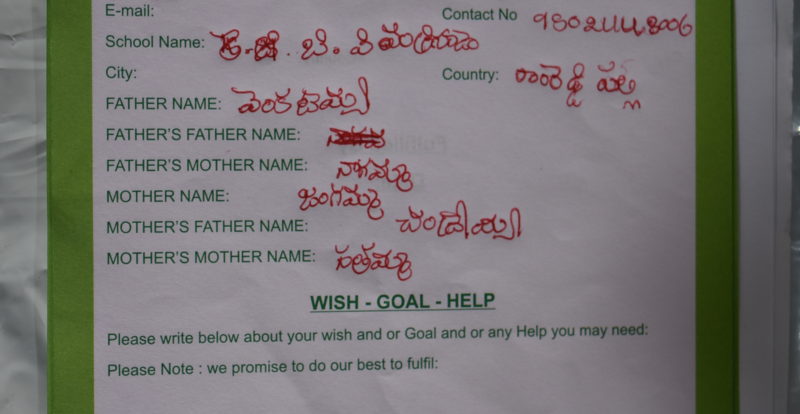 E-mail: Contact No
School Name:
City: Country: రాంరెడ్డి పల్లి
FATHER NAME: వెంకటయ్య
FATHER'S FATHER NAME:
FATHER'S MOTHER NAME: నాగమ్మ
MOTHER NAME: జంగమ్మ
MOTHER'S FATHER NAME: చంద్రయ్య
MOTHER'S MOTHER NAME: సత్తమ్మ
WISH - GOAL - HELP
Please write below about your wish and or Goal and or any Help you may need:
Please Note : we promise to do our best to fulfil: